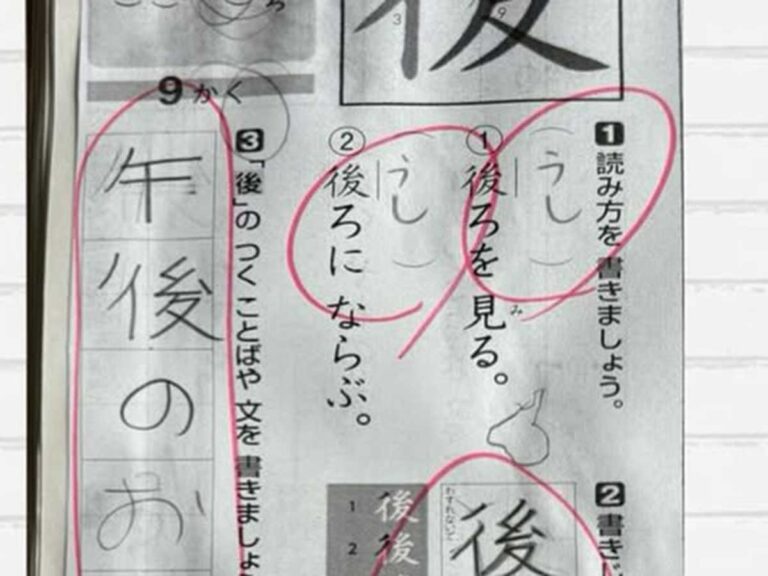 後
1 読み方を 書きましょう。
うし
① 後ろを 見る。
み
うし
② 後ろに ならぶ。
2 書きじ
わすれないで
後
1 後
2 後
9かく
3 「後」の つく ことばや 文を 書きましょ
午後のお